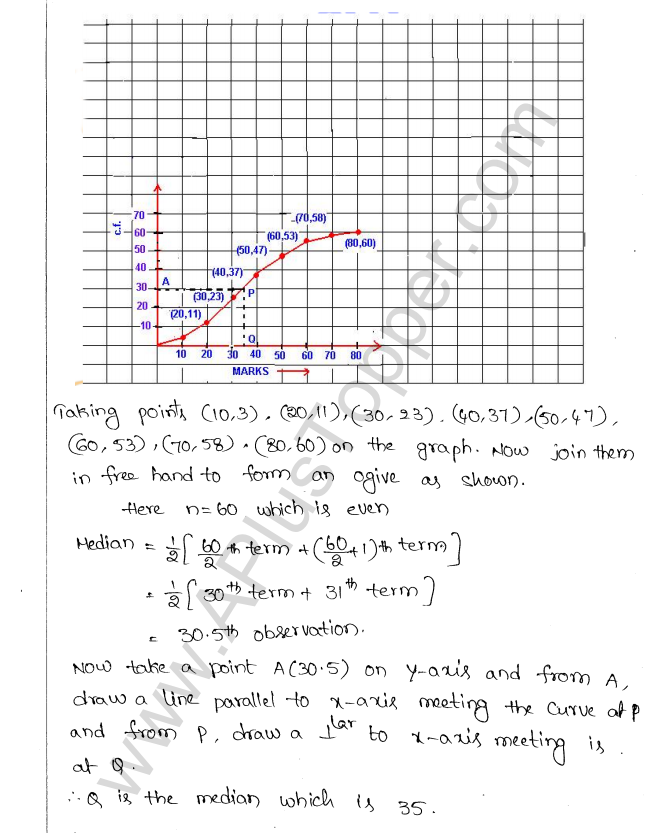 70
60
50
40
30
20
10
c.f.
A
P
Q
(20,11)
(30,23)
(40,37)
(50,47)
(60,53)
(70,58)
(80,60)
10 20 30 40 50 60 70 80
MARKS
Taking points (10,3), (20,11), (30,23), (40,37), (50,47),
(60,53), (70,58), (80,60) on the graph. Now join them
in free hand to form an ogive as shown.
Here n=60 which is even
Median = 1/2 [60/2 th term + (60/2 +1)th term]
= 1/2 [30th term + 31th term]
= 30.5th observation.
Now take a point A(30.5) on y-axis and from A,
draw a line parallel to x-axis meeting the curve at P
and from P, draw a ⊥lar to x-axis meeting is.
at Q.
∴ Q is the median which is 35.
www.APlusTopper.com